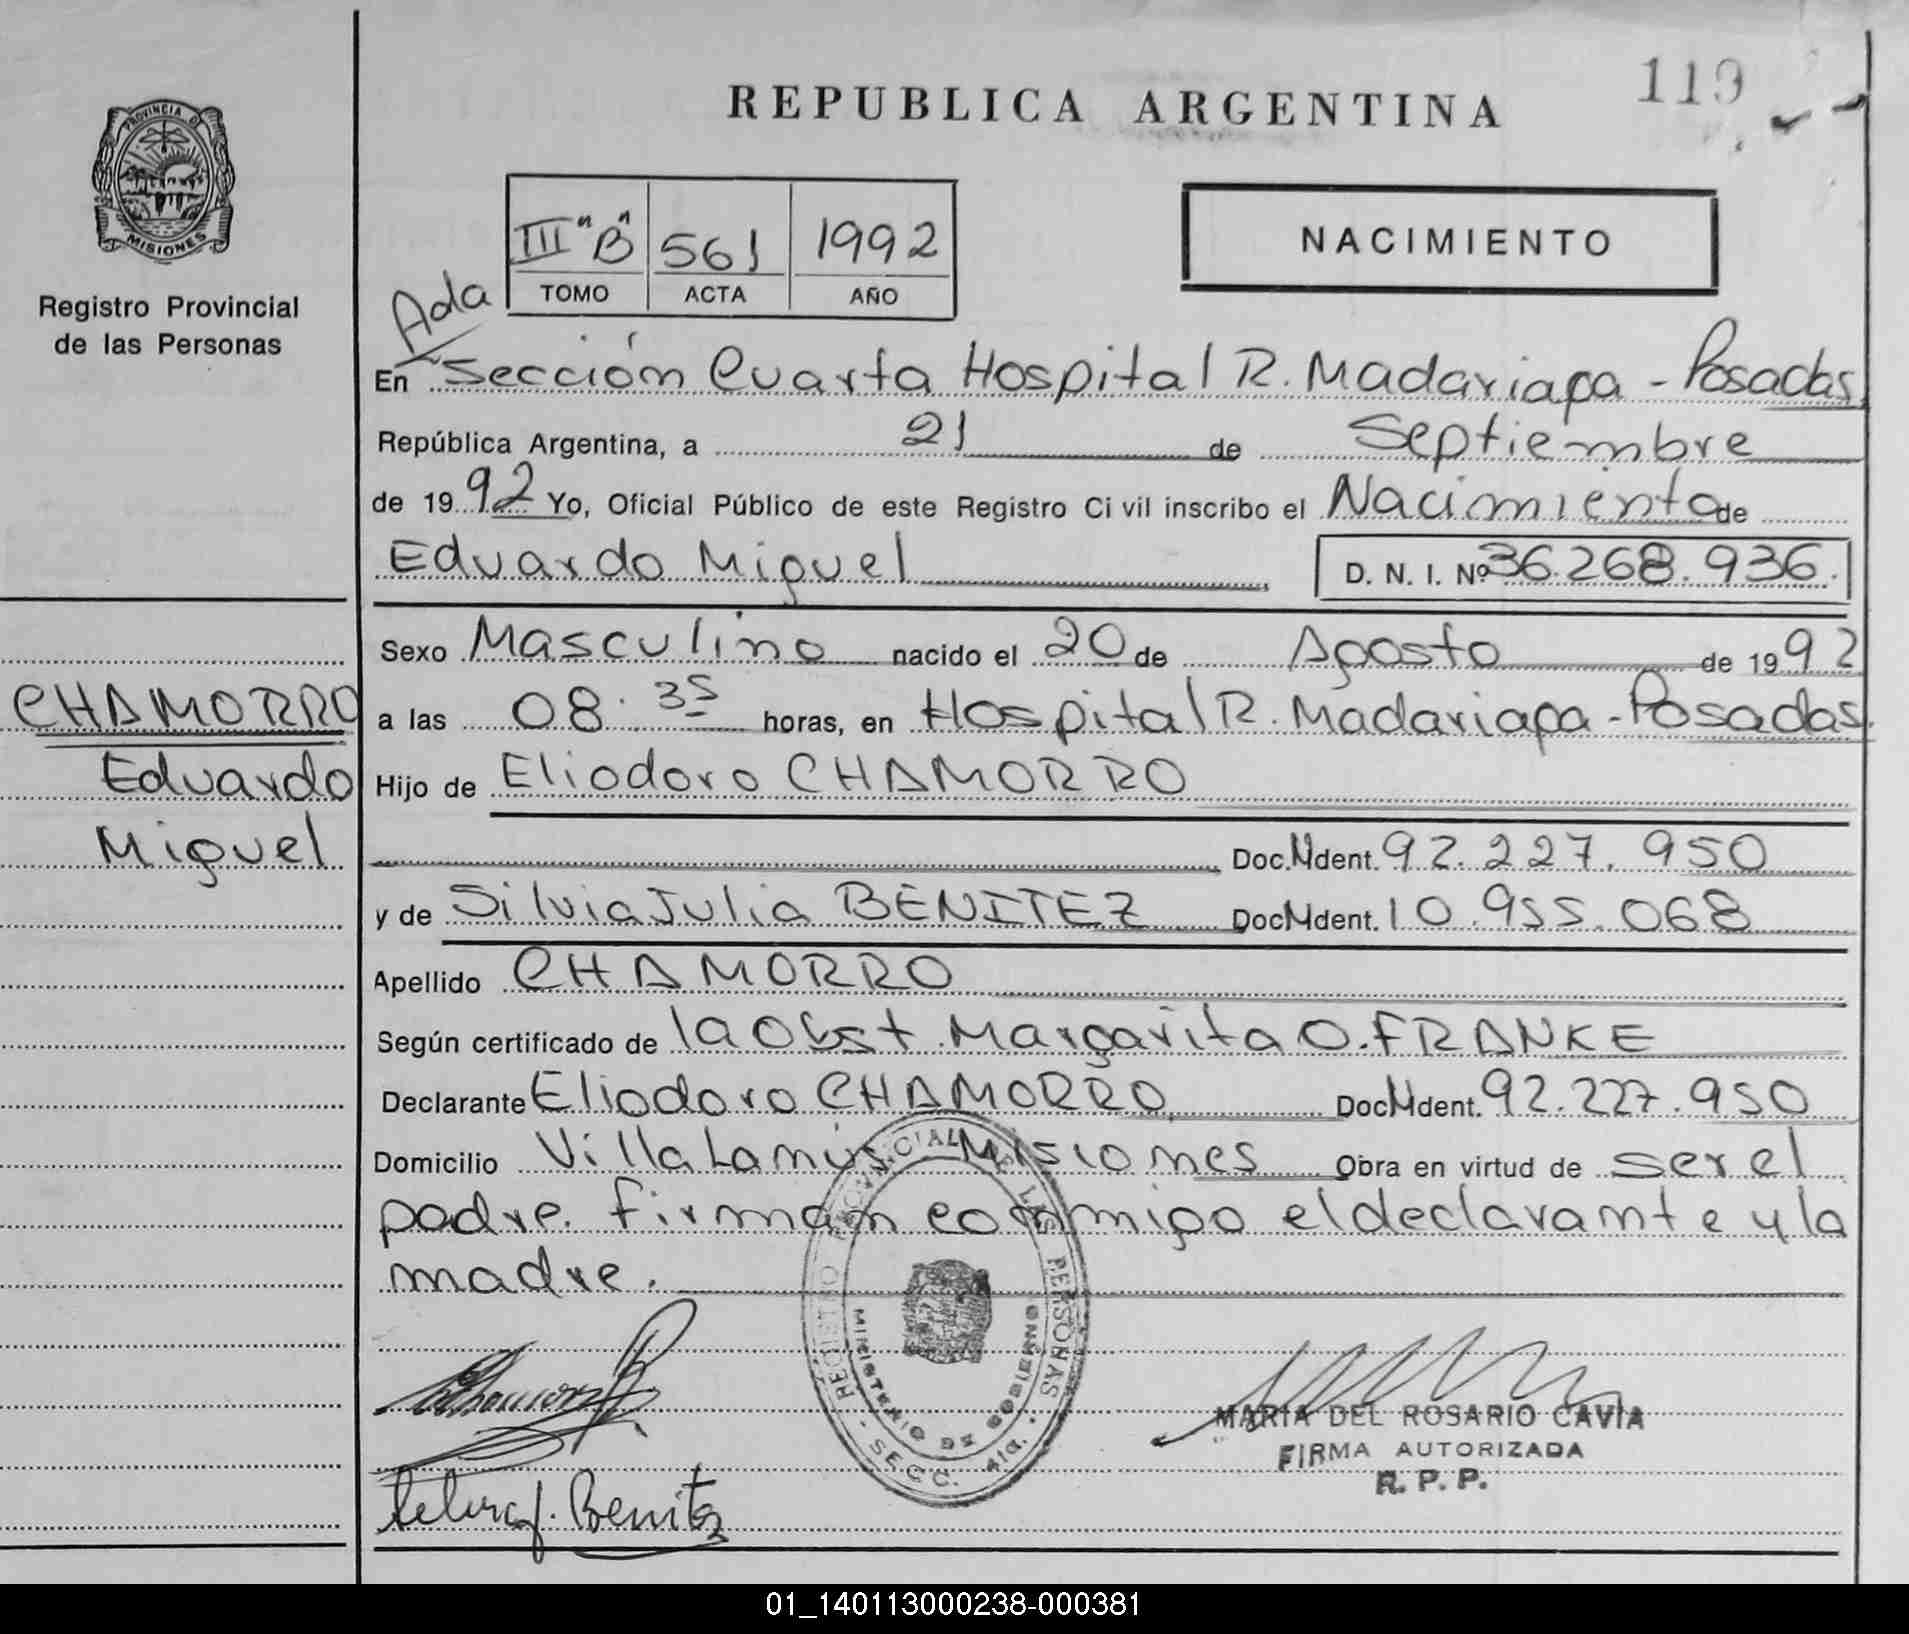 119
REPUBLICA ARGENTINA
PROVINCIA DE
MISIONES
Registro Provincial
de las Personas
III "B" 561 1992
TOMO ACTA AÑO
NACIMIENTO
Ada
En Sección Cuarta Hospital R. Madariaga - Posadas,
República Argentina, a 21 de Septiembre
de 1992 Yo, Oficial Público de este Registro Civil inscribo el Nacimiento de
Eduardo Miguel D. N. I. Nº 36.268.936.
Sexo Masculino nacido el 20 de Agosto de 1992
CHAMORRO
Eduardo
Miguel
a las 08.35 horas, en Hospital R. Madariaga - Posadas.
Hijo de Eliodoro CHAMORRO
Doc. Ident. 92.227.950
y de Silvia Julia BENITEZ Doc Ident. 10.955.068
Apellido CHAMORRO
Según certificado de la Obst. Margarita O. FRANKE
Declarante Eliodoro CHAMORRO Doc Ident. 92.227.950
Domicilio Villa Lanús Misiones Obra en virtud de ser el
padre. Firman conmigo el declarante y la
madre.
REGISTRO PROVINCIAL DE LAS PERSONAS
MINISTERIO DE GOBIERNO
SECC. 4ta.
MARIA DEL ROSARIO CAVIA
FIRMA AUTORIZADA
R. P. P.
Benitez
01_140113000238-000381